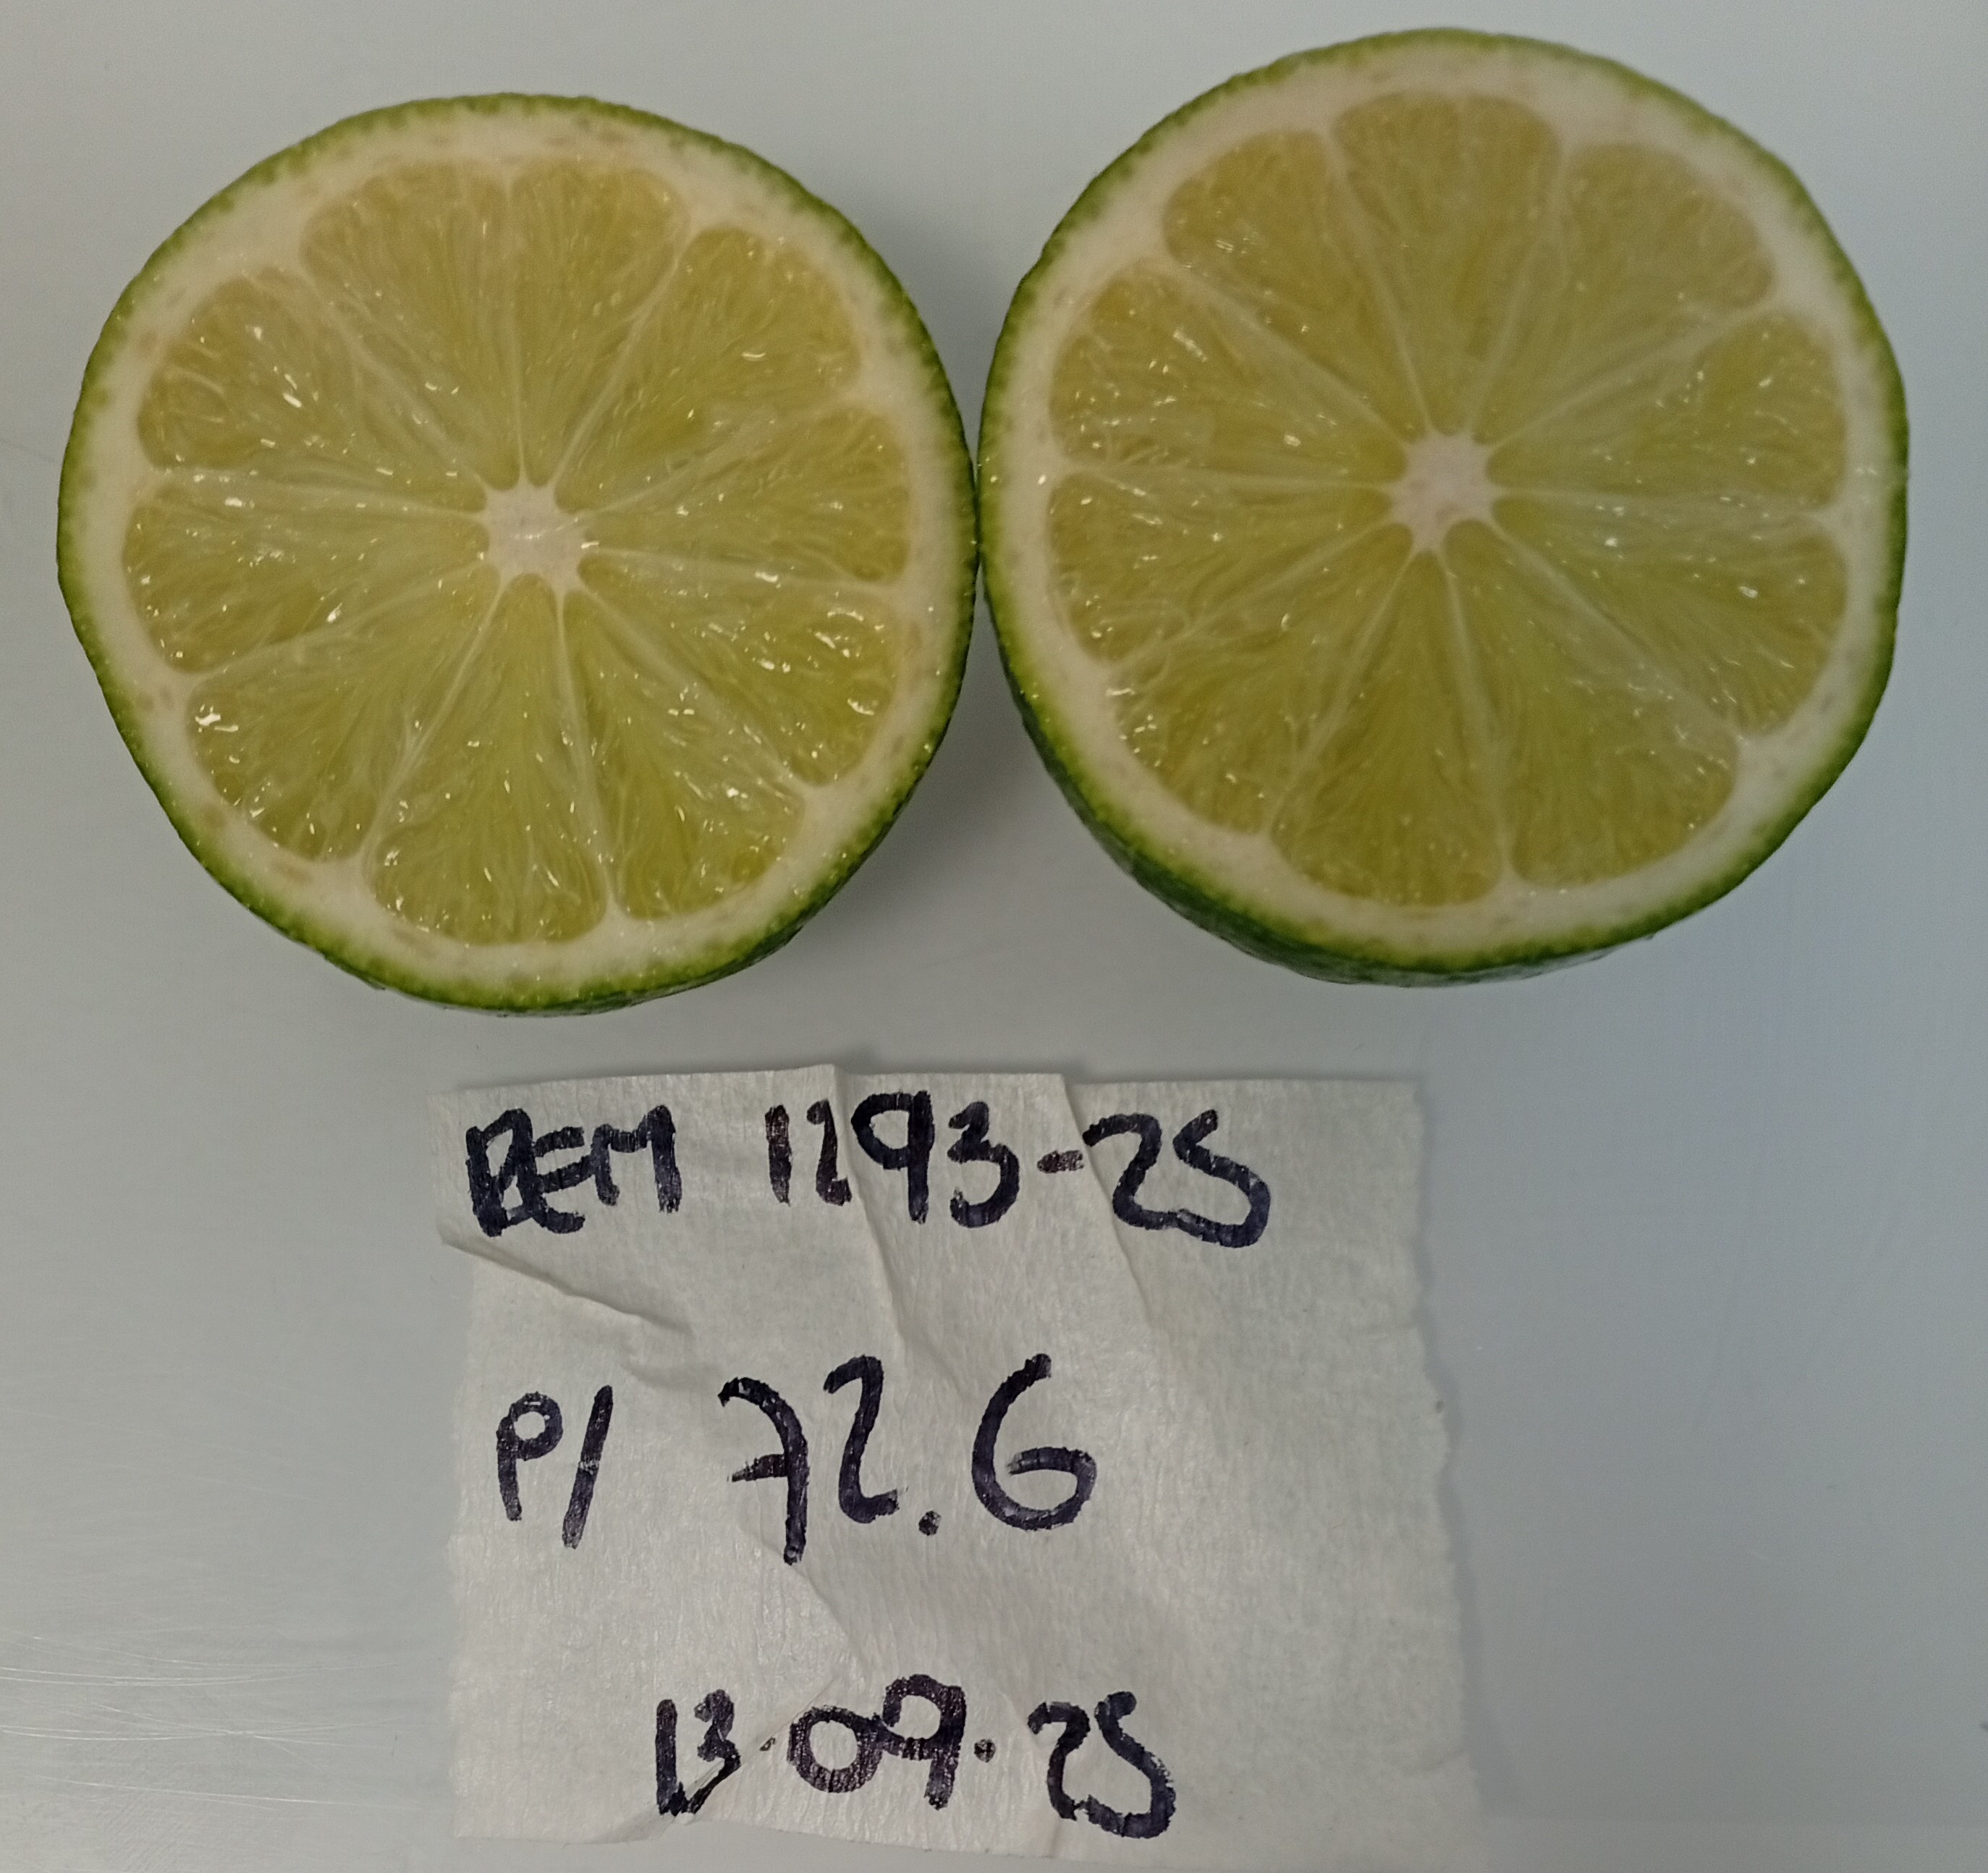 REM 1293-25
P/ 72.6
13.09.25